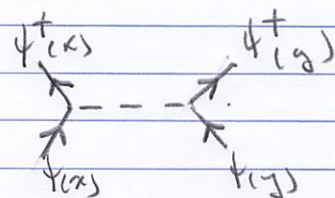 ψ†(x) ψ†(y)
ψ(x) ψ(y)